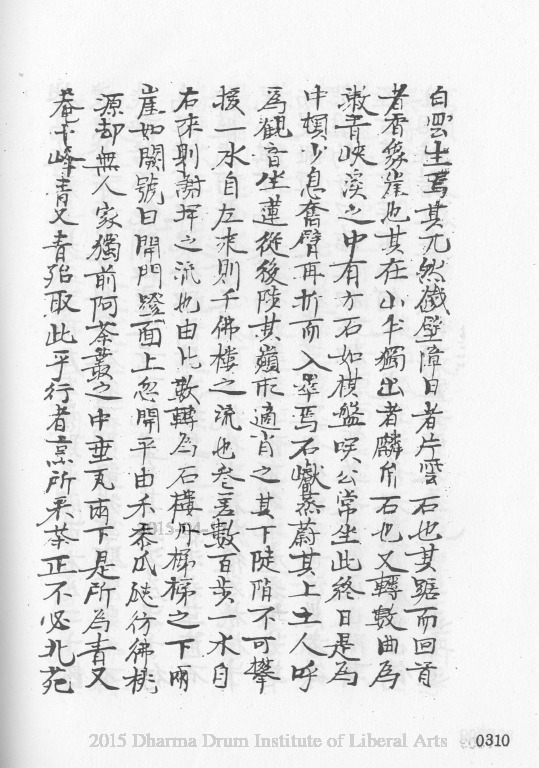 白雲生焉其兀然截壁障日者片雲石也其踞而回首
者香象崖也其在小半獨出者麟爪石也又轉數曲為
漱青峽溪之中有方石如棋盤唊公常坐此終日是為
中嶺少息奮臂再折而入翠焉石巘蒸蔚其上土人呼
為觀音坐蓮從後陟其巔形適肖之其下陡陗不可攀
援一水自左來則千佛樓之流也叁差數百步一水自
右來則謝坪之流也由此數轉為石樓丹梯梯之下兩
崖如闕號曰開門蹬面上忽開平由禾黍瓜瓞彷彿桃
源却無人家獨前阿茶叢之中垂瓦兩下是所為青又
菴千峰青又青殆取此乎行者烹所采茶正不必北苑
2015 Dharma Drum Institute of Liberal Arts
0310